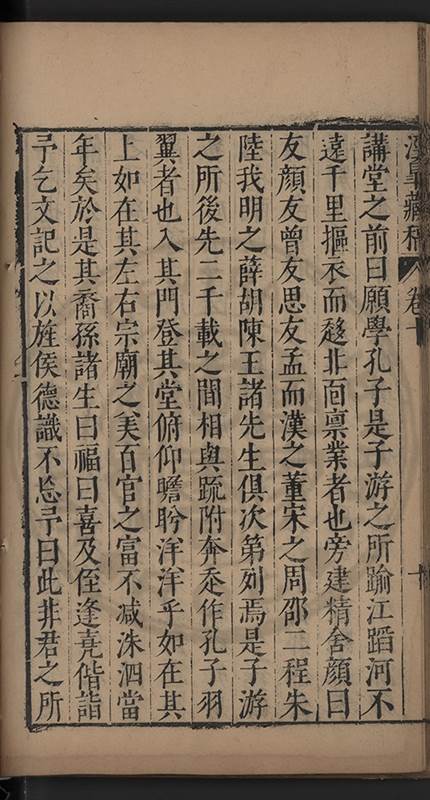 漢臯藏稿 卷十
講堂之前曰願學孔子是子游之所踰江蹈河不
遠千里摳衣而趨北面稟業者也旁建精舍顏曰
友顏友曾友思友孟而漢之董宋之周邵二程朱
陸我明之薛胡陳王諸先生俱次第列焉是子游
之所後先二千載之間相與疏附奔走作孔子羽
翼者也入其門登其堂俯仰瞻盻洋洋乎如在其
上如在其左右宗廟之美百官之富不减洙泗當
年矣於是其裔孫諸生曰福曰喜及侄逢堯偕詣
予乞文記之以旌侯德識不忘予曰此非君之所